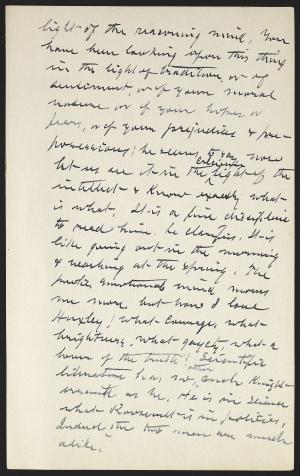 light of the reasoning mind. You
have been looking upon this thing
in the light of tradition, or of
sentiment, or of your moral
nature, or of your hopes or
fears, or of your prejudices & pre-
possessions; he seems to say, now
let us see it in the light of the
intellect & know exactly what
is what. It is a fine discipline
to read him. he clarifies. It is
like going out in the morning
& washing at the spring. The
poetic emotional mind moves
me more but how I love
Huxley! what courage, what
brightness, what gayety, what a
lover of the truth! Scientific
literature has no such Knight-
errant as he. He is in science
what Roosevelt is in politics,
Indeed the two men are much
alike.